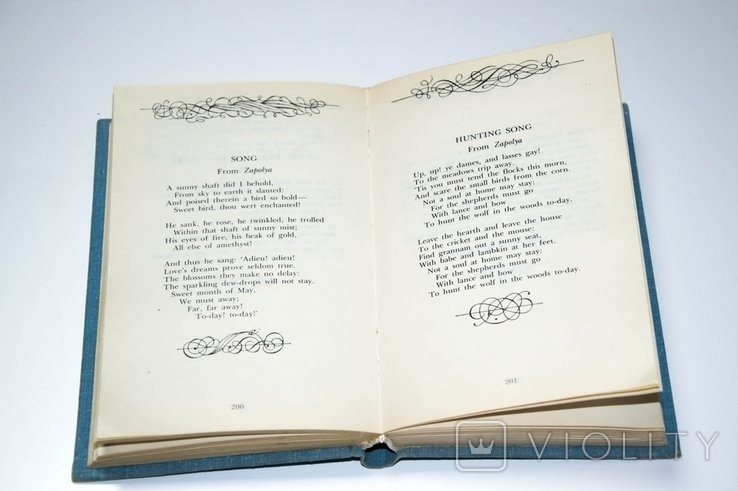 SONG
From Zapolya
A sunny shaft did I behold,
From sky to earth it slanted:
And poised therein a bird so bold—
Sweet bird, thou wert enchanted!
He sank, he rose, he twinkled, he trolled
Within that shaft of sunny mist;
His eyes of fire, his beak of gold,
All else of amethyst!
And thus he sang: 'Adieu! adieu!
Love's dreams prove seldom true.
The blossoms they make no delay:
The sparkling dew-drops will not stay.
Sweet month of May,
We must away;
Far, far away!
To-day! to-day!'
200
HUNTING SONG
From Zapolya
Up, up! ye dames, and lasses gay!
To the meadows trip away.
'Tis you must tend the flocks this morn,
And scare the small birds from the corn.
Not a soul at home may stay:
For the shepherds must go
With lance and bow
To hunt the wolf in the woods to-day.
Leave the hearth and leave the house
To the cricket and the mouse:
Find grannam out a sunny seat,
With babe and lambkin at her feet.
Not a soul at home may stay:
For the shepherds must go
With lance and bow
To hunt the wolf in the woods to-day.
201
VIOLITY